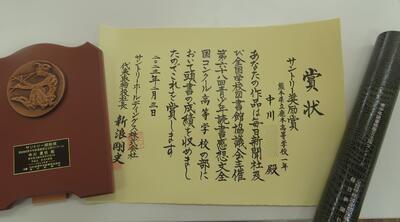 賞状
サントリー奨励賞
熊本県立熊本高等学校一年
中川 殿
あなたの作品は毎日新聞社及
び全国学校図書館協議会主催
第六十八回青少年読書感想文全
国コンクール高等学校の部に
おいて頭書の成績を収めまし
たのでこれを賞します
二〇二三年二月三日
サントリーホールディングス株式会社
代表取締役社長 新浪剛史
サントリー奨励賞